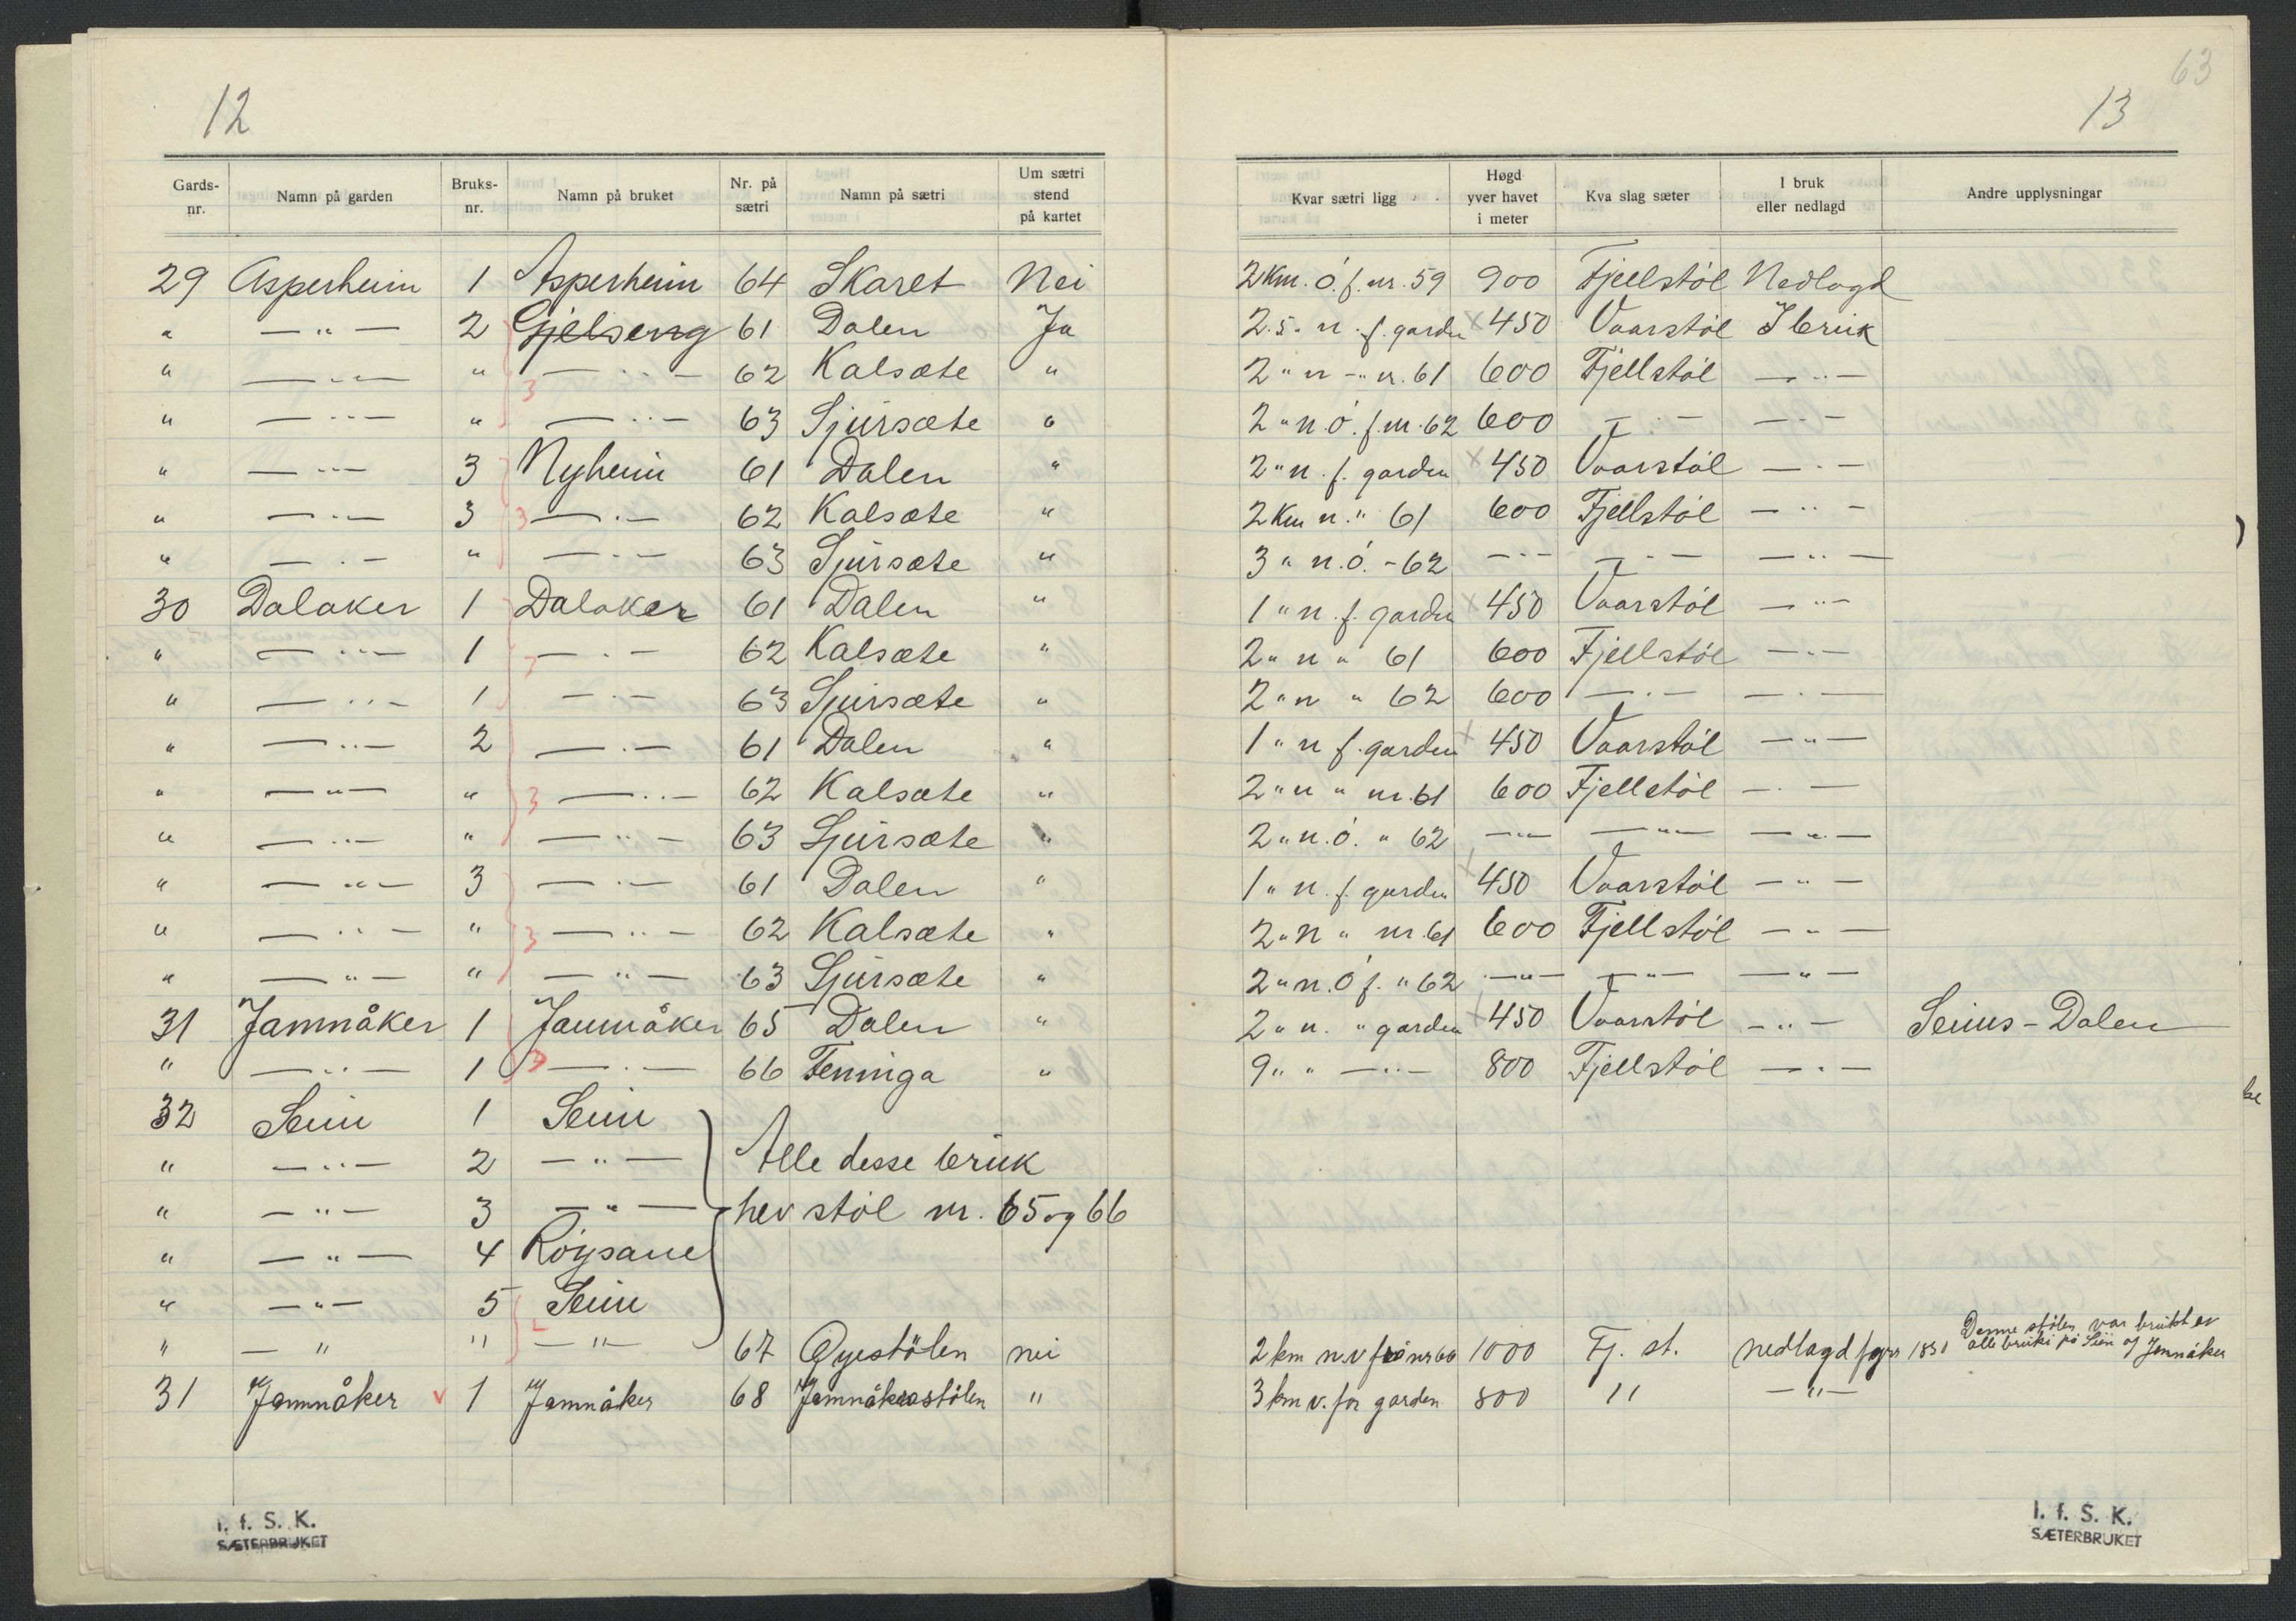 12
Gards-nr. | Namn på garden | Bruks-nr. | Namn på bruket | Nr. på sætri | Namn på sætri | Um sætri stend på kartet
29 Asperheim 1 Asperheim 64 Skaret Nei
" —"— 2 Gjelseng 61 Dalen Ja
" —"— " —"— 62 Kalsæte "
" —"— " —"— 63 Sjursæte "
" —"— 3 Nyheim 61 Dalen "
" —"— 3 —"— 62 Kalsæte "
" —"— " —"— 63 Sjursæte "
30 Dalaker 1 Dalaker 61 Dalen "
" —"— 1 —"— 62 Kalsæte "
" —"— 1 —"— 63 Sjursæte "
" —"— 2 —"— 61 Dalen "
" —"— " —"— 62 Kalsæte "
" —"— " —"— 63 Sjursæte "
" —"— 3 —"— 61 Dalen "
" —"— " —"— 62 Kalsæte "
" —"— " —"— 63 Sjursæte "
31 Jamnåker 1 Jamnåker 65 Dalen "
" —"— 1 —"— 66 Fenninga "
32 Seim 1 Seim
" —"— 2 —"— Alle desse bruk
" —"— 3 —"— hev støl nr. 65 og 66
" —"— 4 Röysane
" —"— 5 Seim
" —"— " —"— 67 Øyestölen nei
31 Jamnåker v 1 Jamnåker 68 Jamnåkerstölen "
I. f. S. K.
SÆTERBRUKET
63
13
Kvar sætri ligg | Høgd yver havet i meter | Kva slag sæter | I bruk eller nedlagd | Andre upplysningar
2 Km. ö. f. nr. 59 900 Fjellstöl Nedlagd
2.5 " n. f. garden x 450 Vaarstöl I bruk
2 " n —" nr. 61 600 Fjellstöl —"—
2 " n.ö. f. nr. 62 600 —"— —"—
2 " n. f. garden x 450 Vaarstöl —"—
2 Km n. " 61 600 Fjellstöl —"—
3 " n.ö. - 62 —"— —"— —"—
1 " n. f. garden x 450 Vaarstöl —"—
2 " n " 61 600 Fjellstöl —"—
2 " n " 62 600 —"— —"—
1 " n f. garden x 450 Vaarstöl —"—
2 " n " nr. 61 600 Fjellstöl —"—
2 " n.ö. " 62 —"— —"— —"—
1 " n. f. garden x 450 Vaarstöl —"—
2 " n " nr. 61 600 Fjellstöl —"—
2 " n.ö f. " 62 —"— —"— —"—
2 " n. " garden x 450 Vaarstöl —"— Seims-Dalen
9 " " —"— 800 Fjellstöl —"—
2 km n.v frå nr 66 1000 Fj. st. nedlagd fyrr 1850 Denne stölen var brukt av
alle bruki på Seim og Jamnåker
3 km v. for garden 800 " —"—
I. f. S. K.
SÆTERBRUKET